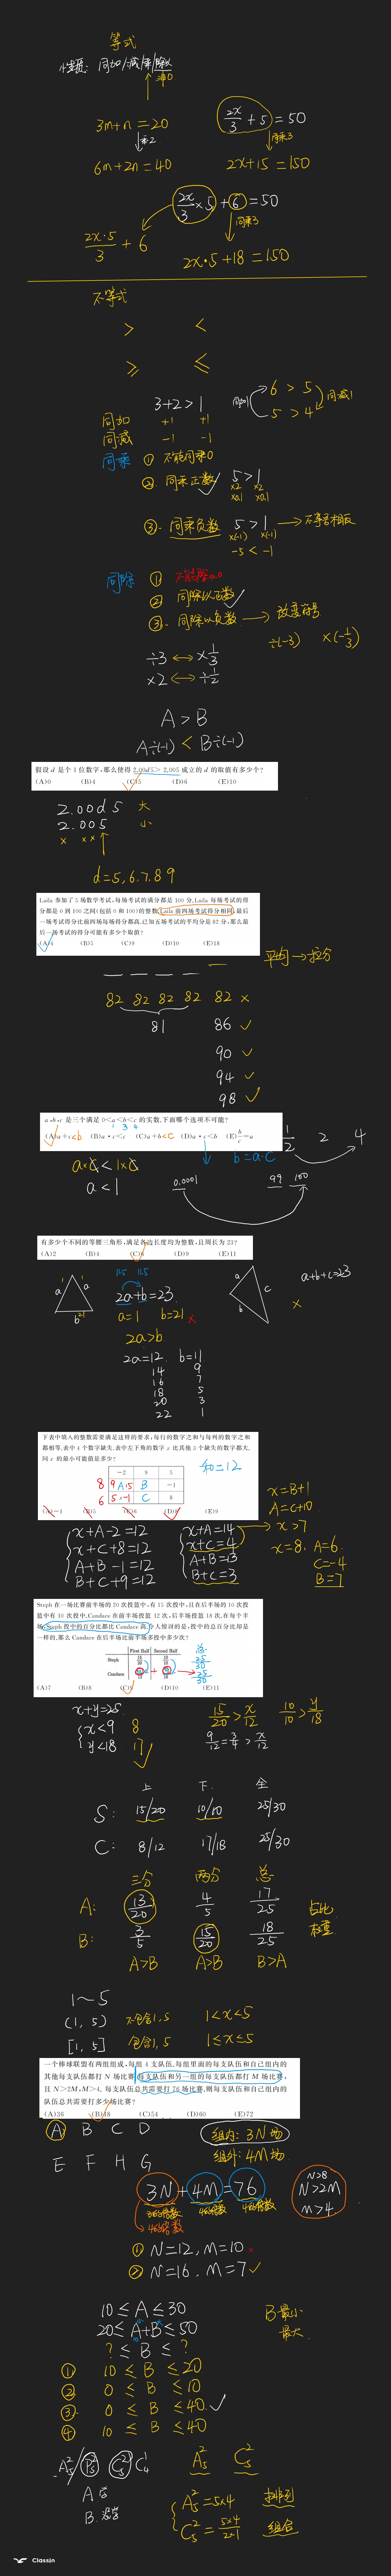 等式
性质: 同加/减/乘/除以
非0
3m+n=20
↓乘2
6m+2n=40
2x/3 + 5 = 50
↓同乘3
2x+15=150
2x/3 × 5 + 6 = 50
↓同乘3
2x·5/3 + 6
2x·5+18=150
不等式
> <
≥ ≤
3+2>1
同加 +1 +1
同减 -1 -1
6 > 5
5 > 4
同加1
同减1
同乘 ① 不能同乘0
②. 同乘正数 5>1
×2 ×2
×0.1 ×0.1
③. 同乘负数 5>1 → 不等号相反
×(-1) ×(-1)
-5 < -1
同除 ① 不能除以0
② 同除以正数
③. 同除以负数 → 改变符号
÷(-3) ×(-1/3)
÷3 ↔ ×1/3
×2 ↔ ÷1/2
A > B
A÷(-1) < B÷(-1)
假设 d 是个 1 位数字,那么使得 2.00d5> 2.005 成立的 d 的取值有多少个?
(A)0 (B)4 (C)5 (D)6 (E)10
2.00d5 大
2.005 小
× ××
d=5,6,7,8,9
Laila 参加了 5 场数学考试,每场考试的满分都是 100 分,Laila 每场考试的得
分都是 0 到 100 之间(包括 0 和 100)的整数,Laila 前四场考试得分相同,最后
一场考试得分比前四场每场得分都高,已知五场考试的平均分是 82 分,那么最
后一场考试的得分可能有多少个取值?
(A)4 (B)5 (C)9 (D)10 (E)18
平均→拉分
82 82 82 82 82 ×
81 86 ✓
90 ✓
94 ✓
98 ✓
a,b,c 是三个满足 0<a<b<c 的实数,下面哪个选项不可能?
1 3 4
(A)a+c<b (B)a·b<c (C)a+b<c (D)a·c<b (E)b/c=a
b=a·c
1/2 2 4
a×c<1×c
a<1
0.0001 99 100
有多少个不同的等腰三角形,满足各边长度均为整数,且周长为 23?
(A)2 (B)4 (C)6 (D)9 (E)11
11.5 11.5
2a+b=23
a a b
a=1 b=21 ×
2a>b
a b c
a+b+c=23
×
2a=12 b=11
14 9
16 7
18 5
20 3
22 1
下表中填入的整数需要满足这样的要求:每行的数字之和与每列的数字之
和都相等,表中 4 个数字缺失,表中左下角的数字 x 比其他 3 个缺失的数字都大,
问 x 的最小可能值是多少?
-2 9 5
A B -1
x C 8
和=12
(A)-1 (B)5 (C)6 (D)8 (E)9
x+A-2=12
x+C+8=12
A+B-1=12
B+C+9=12
x+A=14
x+C=4
A+B=13
B+C=3
x=B+1
A=C+10
x>7
x=8, A=6
C=-4
B=7
Steph 在一场比赛前半场的 20 次投篮中,有 15 次投中,且在后半场的 10 次投
篮中有 10 次投中,Candace 在前半场投篮 12 次,后半场投篮 18 次,在每个半
场,Steph 投中的百分比都比 Candace 高,令人惊讶的是,投中的总百分比却是
一样的,那么 Candace 在后半场比前半场多投中多少次?
First Half Second Half 总
Steph 15/20 10/10 25/30
Candace 12 18 25/30
(A)7 (B)8 (C)9 (D)10 (E)11
x+y=25
x<9 8
y<18 17
15/20 > x/12 10/10 > y/18
9/12=3/4 > x/12
上 下 全
S: 15/20 10/10 25/30
C: 8/12 17/18 25/30
三分 两分 总
A: 13/20 4/5 17/25
B: 3/5 15/20 18/25
A>B A>B B>A
占比
权重
1~5
(1,5) 不包含1,5 1<x<5
[1,5] 包含1,5 1≤x≤5
一个棒球联盟有两组组成,每组 4 支队伍,每组里面的每支队伍和自己组内的
其他每支队伍都打 N 场比赛,每支队伍和另一组的每支队伍都打 M 场比赛,
且 N>2M,M>4,每支队伍总共需要打 76 场比赛,则每支队伍和自己组内的
队伍总共需要打多少场比赛?
(A)36 (B)48 (C)54 (D)60 (E)72
A B C D
E F H G
组内: 3N场
组外: 4M场
3N+4M=76
4的倍数 4的倍数
→4的倍数
N>8
N>2M
M>4
① N=12, M=10 ×
② N=16, M=7 ✓
10≤A≤30
20≤A+B≤50
?≤B≤?
B最小
最大
① 10≤B≤20
② 0≤B≤10
③ 0≤B≤40 ✓
④ 10≤B≤40
A
B
排列
组合
A₅²=5×4
C₅²=5×4/2×1
A₅² C₅²
ClassIn